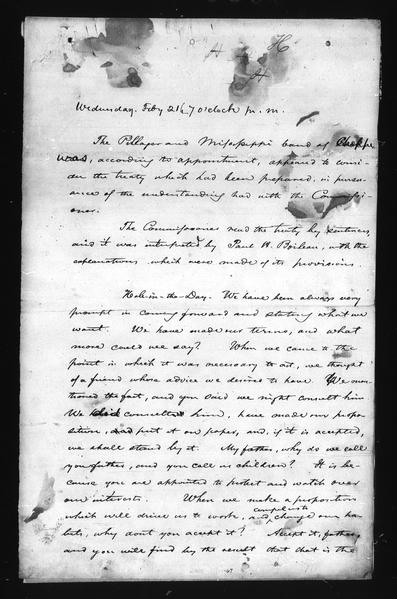 H
H
H
Wednesday. Feby 21st 7 o'clock p. m.
The Pillager and Mississippi band of Chippe
was, according to appointment, appeared to consi-
der the treaty which had been prepared, in pursu-
ance of the understanding had with the Commissi-
oner.
The Commissioner read the treaty by sentences,
and it was interpreted by Paul H. Beileau, with the
explanations which were made of its provisions.
Hole-in-the-Day. We have been always very
prompt in coming forward and stating what we
want. We have made our terms, and what
more could we say? When we came to the
point in which it was necessary to act, we thought
of a friend whose advice we desired to have. We men-
tioned the fact, and you said we might consult him
We consulted him, have made our propo-
sition, and put it on paper, and, if it is accepted,
we shall stand by it. My father, why do we call
you father, and you call us children? It is be-
cause you are appointed to protect and watch over
our interests. When we make a proposition
which will drive us to work, and completely change our ha-
bits, why dont you accept it? Accept it, father,
and you will find by the result that that is the